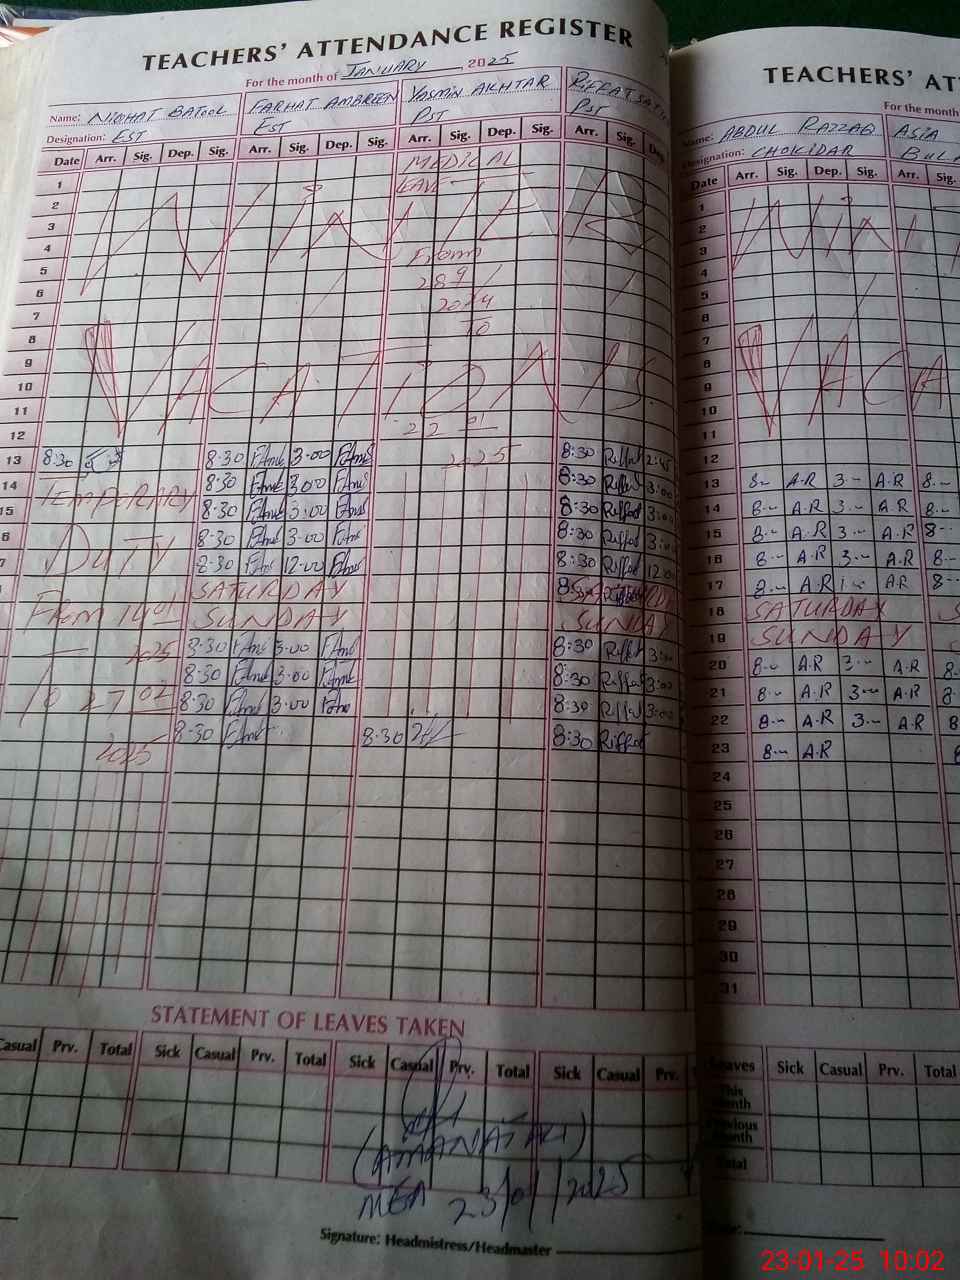 TEACHERS' ATTENDANCE REGISTER
For the month of JANUARY 2025
Name: NIGHAT BATOOL FARHAT AMBREEN YASMIN AKHTAR RIFFAT
Designation: EST EST PST PST
Date Arr. Sig. Dep. Sig. Arr. Sig. Dep. Sig. Arr. Sig. Dep. Sig. Arr. Sig. Dep
1 MEDICAL
2 LEAVE
3
4 From
5 28 9
6 2024
7 To
8
9
10
11
12 22 01
2025
WINTER
VACATIONS
13 8:30 8:30 FAmb 3:00 FAmb 8:30 Riffat 2:45
14 8:30 FAmb 3:00 FAmb 8:30 Riffat 3:00
15 8:30 FAmb 3:00 FAmb 8:30 Riffat 3:00
6 8:30 FAmb 3:00 FAmb 8:30 Riffat 3:00
7 8:30 FAmb 12:00 FAmb 8:30 Riffat 12:0
SATURDAY
SUNDAY SUNDAY
8:30 FAmb 3:00 FAmb 8:30 Riffat 3:00
8:30 FAmb 3:00 FAmb 8:30 Riffat 3:00
8:30 FAmb 3:00 FAmb 8:30 Riffat 3:00
8:30 FAmb 8:30 8:30 Riffat
TEMPORARY
DUTY
From 14 01
2025
To 27 02
2025
STATEMENT OF LEAVES TAKEN
Casual Prv. Total Sick Casual Prv. Total Sick Casual Prv. Total Sick Casual Prv.
(AMANAT ALI)
MEA 23/01/2025
Signature: Headmistress/Headmaster
TEACHERS' AT
For the month
Name: ABDUL RAZZAQ ASIA
Designation: CHOKIDAR
Date Arr. Sig. Dep. Sig. Arr. Sig.
1
2
3
4
5
6
7
8
9
10
11
12
13 8-- A.R 3-- A.R 8--
14 8-- A.R 3-- A.R 8--
15 8-- A.R 3-- A.R 8--
16 8-- A.R 3-- A.R 8--
17 8-- A.R 1-- A.R 8--
18 SATURDAY
19 SUNDAY
20 8-- A.R 3-- A.R 8-
21 8-- A.R 3-- A.R 8-
22 8-- A.R 3-- A.R 8-
23 8-- A.R
24
25
26
27
28
29
30
31
Leaves Sick Casual Prv. Total
This Month
Previous Month
Total
23-01-25 10:02